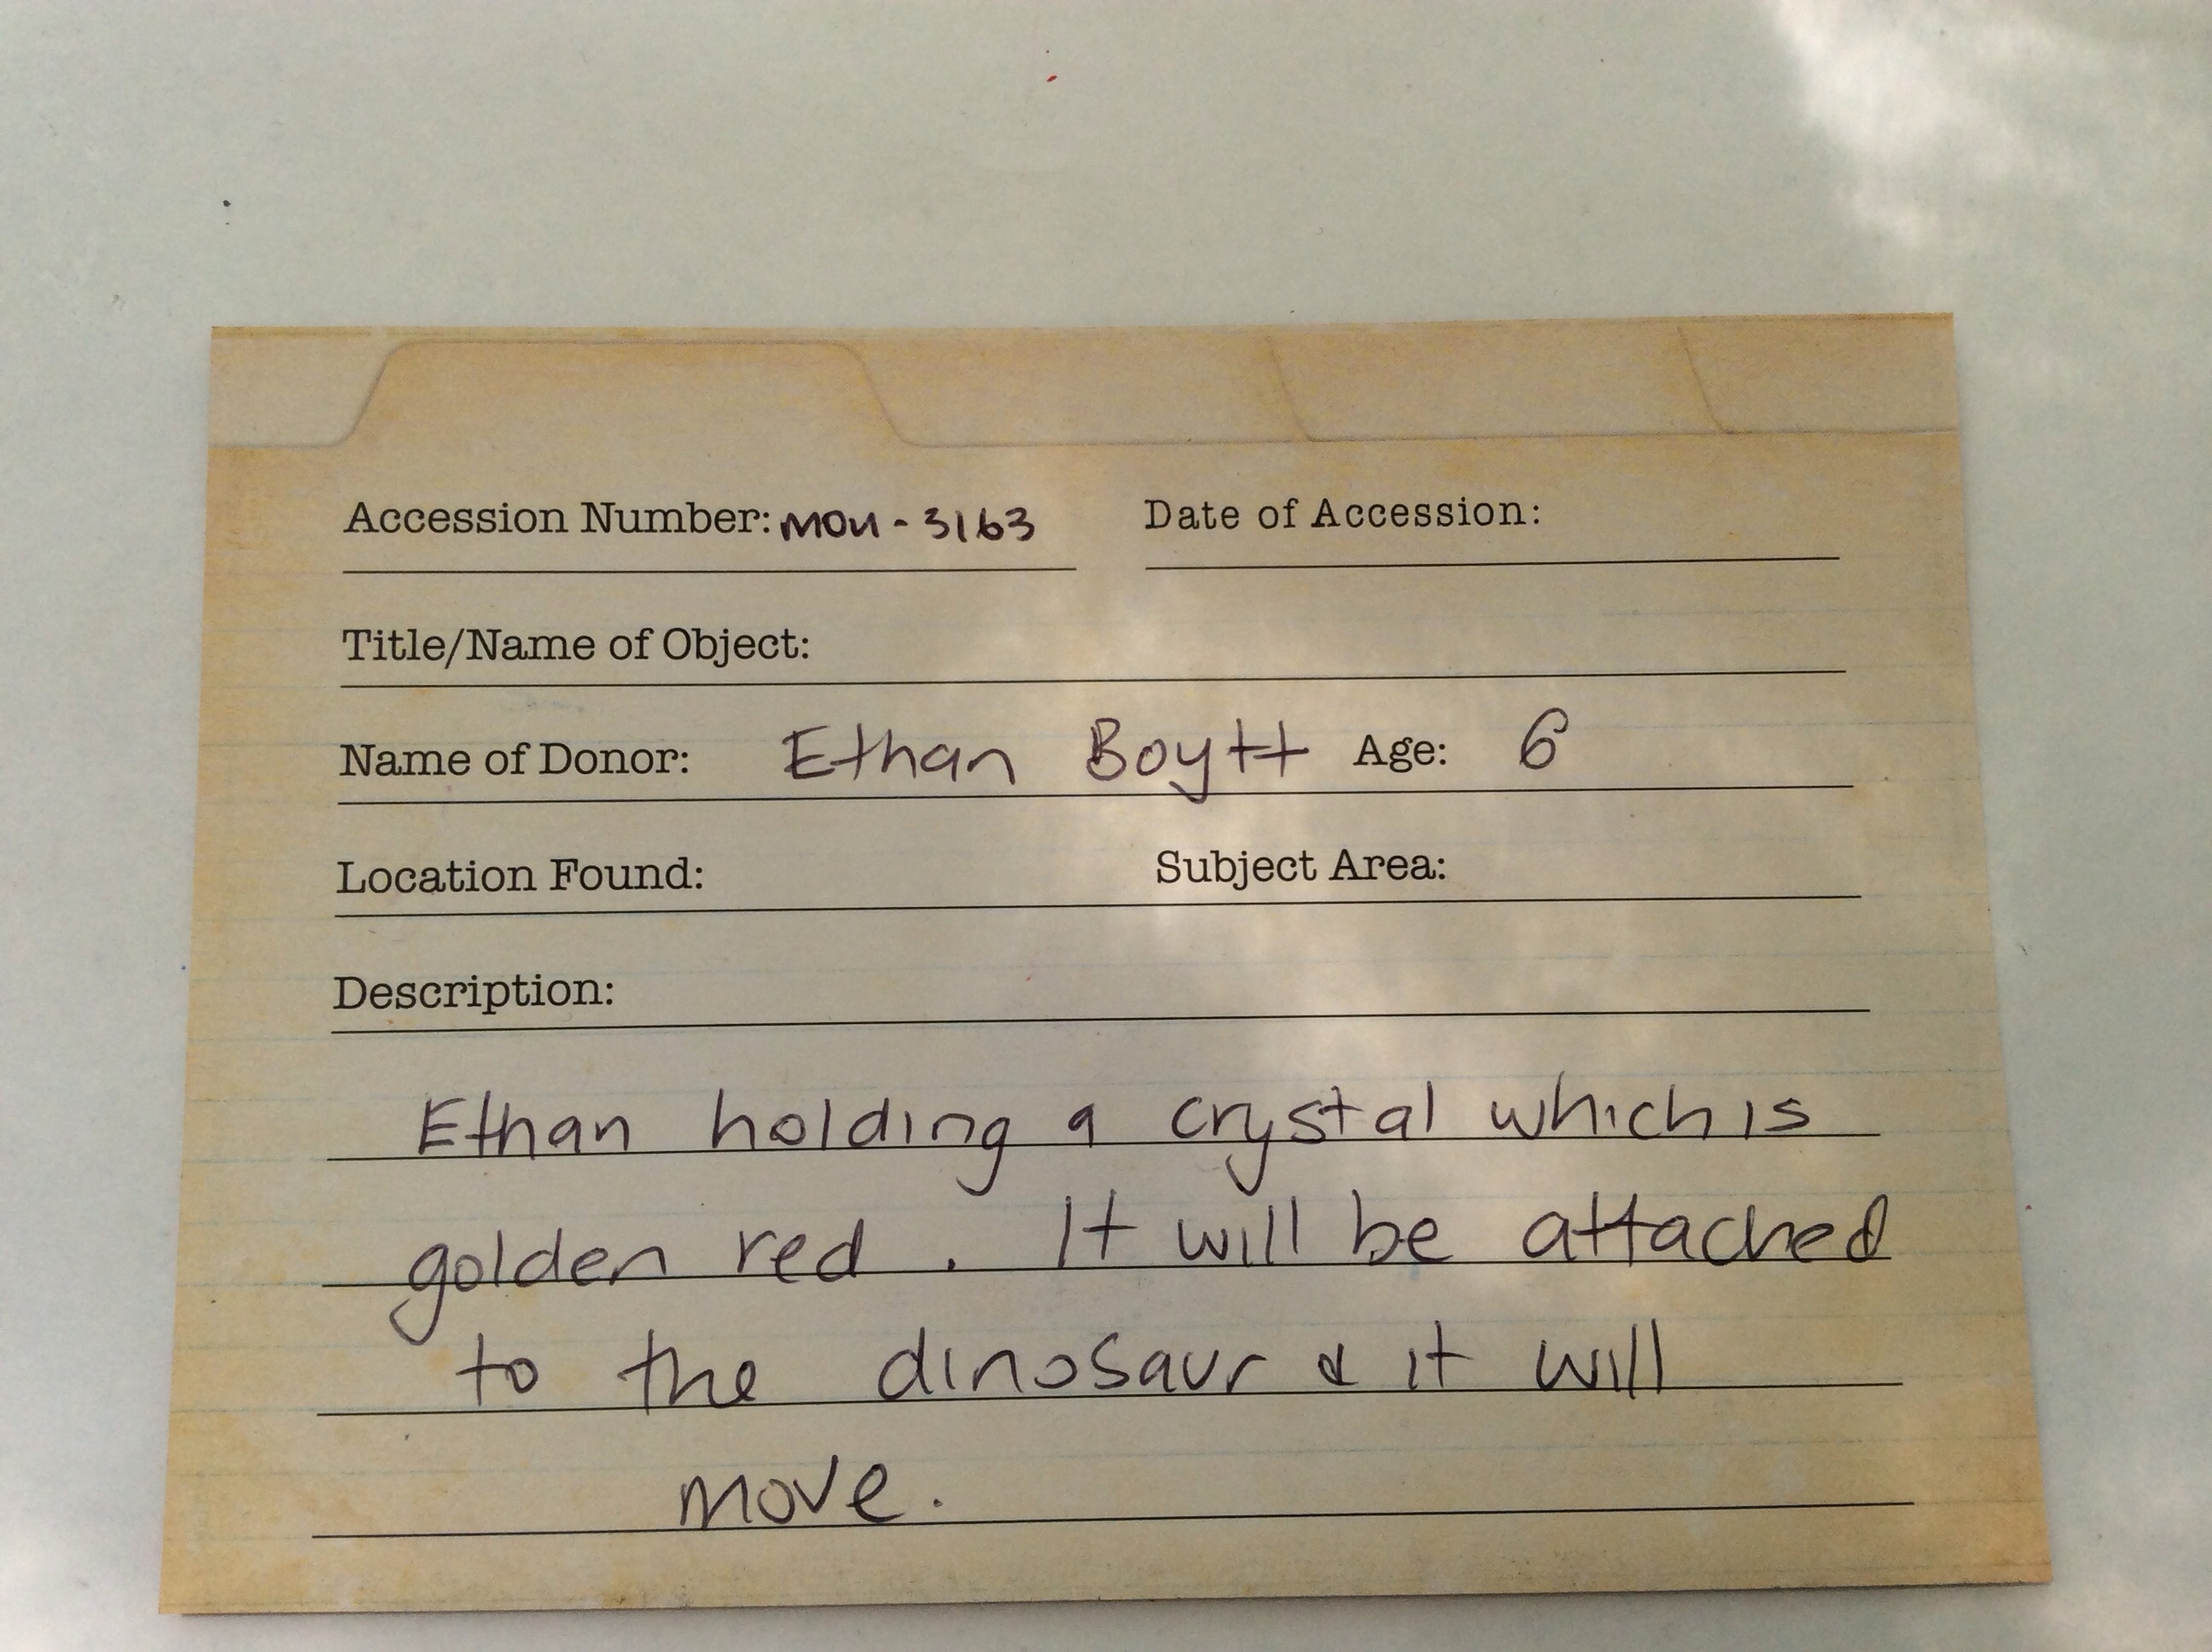 Accession Number: MOU-3163 Date of Accession:
Title/Name of Object:
Name of Donor: Ethan Boytt Age: 6
Location Found: Subject Area:
Description:
Ethan holding a crystal which is
golden red. It will be attached
to the dinosaur & it will
move.